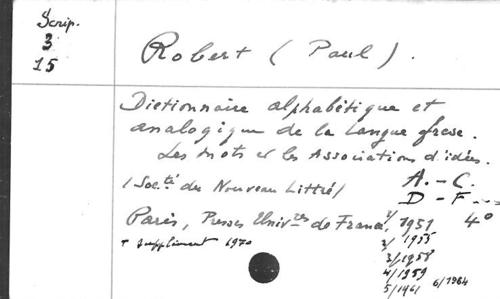 Scrip.
3
15
Robert (Paul).
Dictionnaire alphabétique et
analogique de la langue frcse.
Les mots et les Associations d'idées.
A.-C.
(Socté du Nouveau Littré)
D-F---
Paris, Presses Univres de France, 1/ 1951 4°
+ supplément 1970
2/ 1955
3/1958
4/1959
5/1961 6/1964